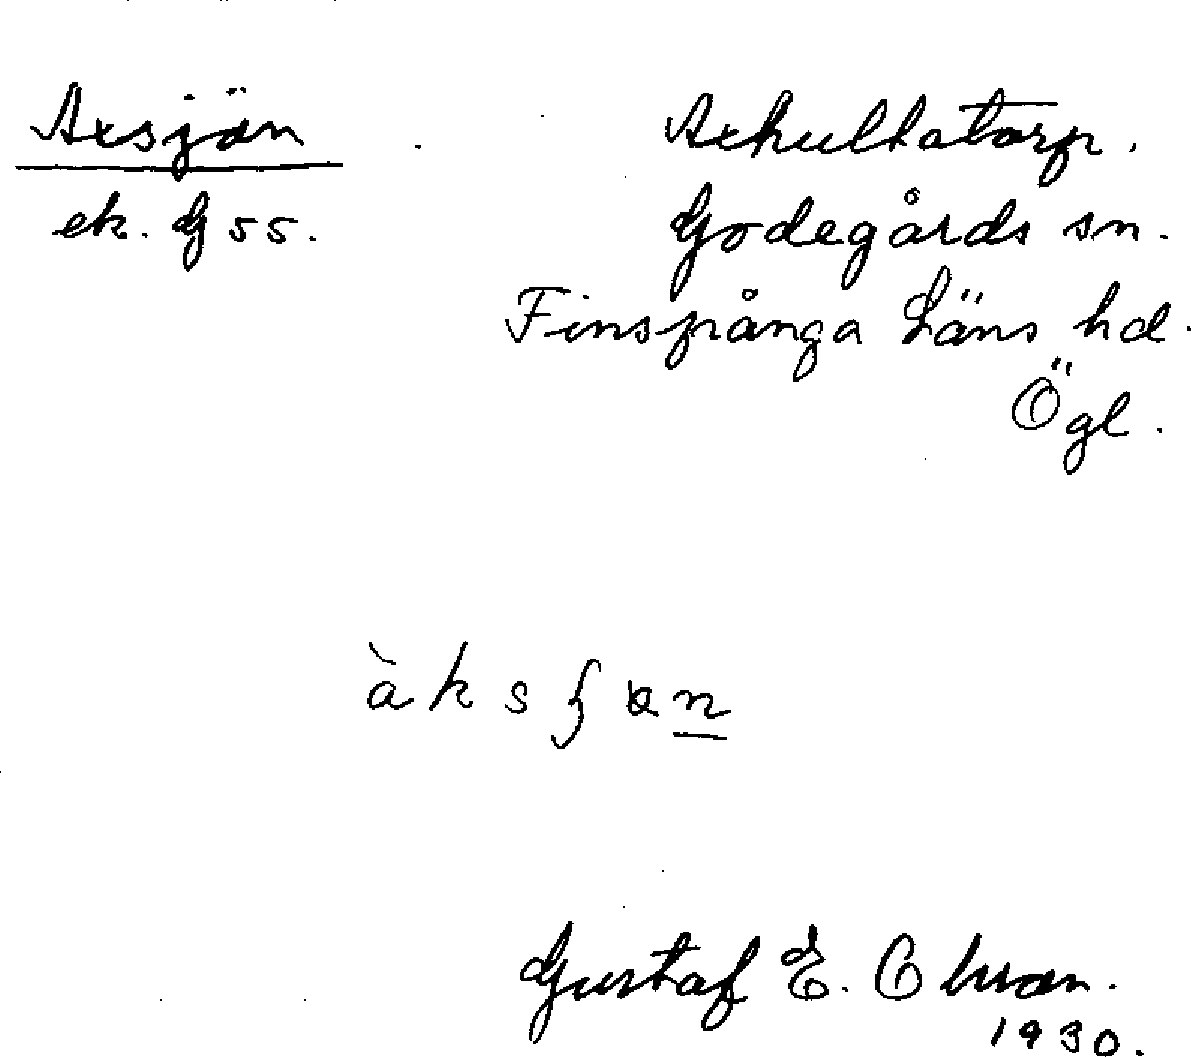 Axsjön
ek. G 55.
Axhultatorp.
Godegårds sn.
Finspånga läns hd.
Ögl.
Gustaf E.
1930.